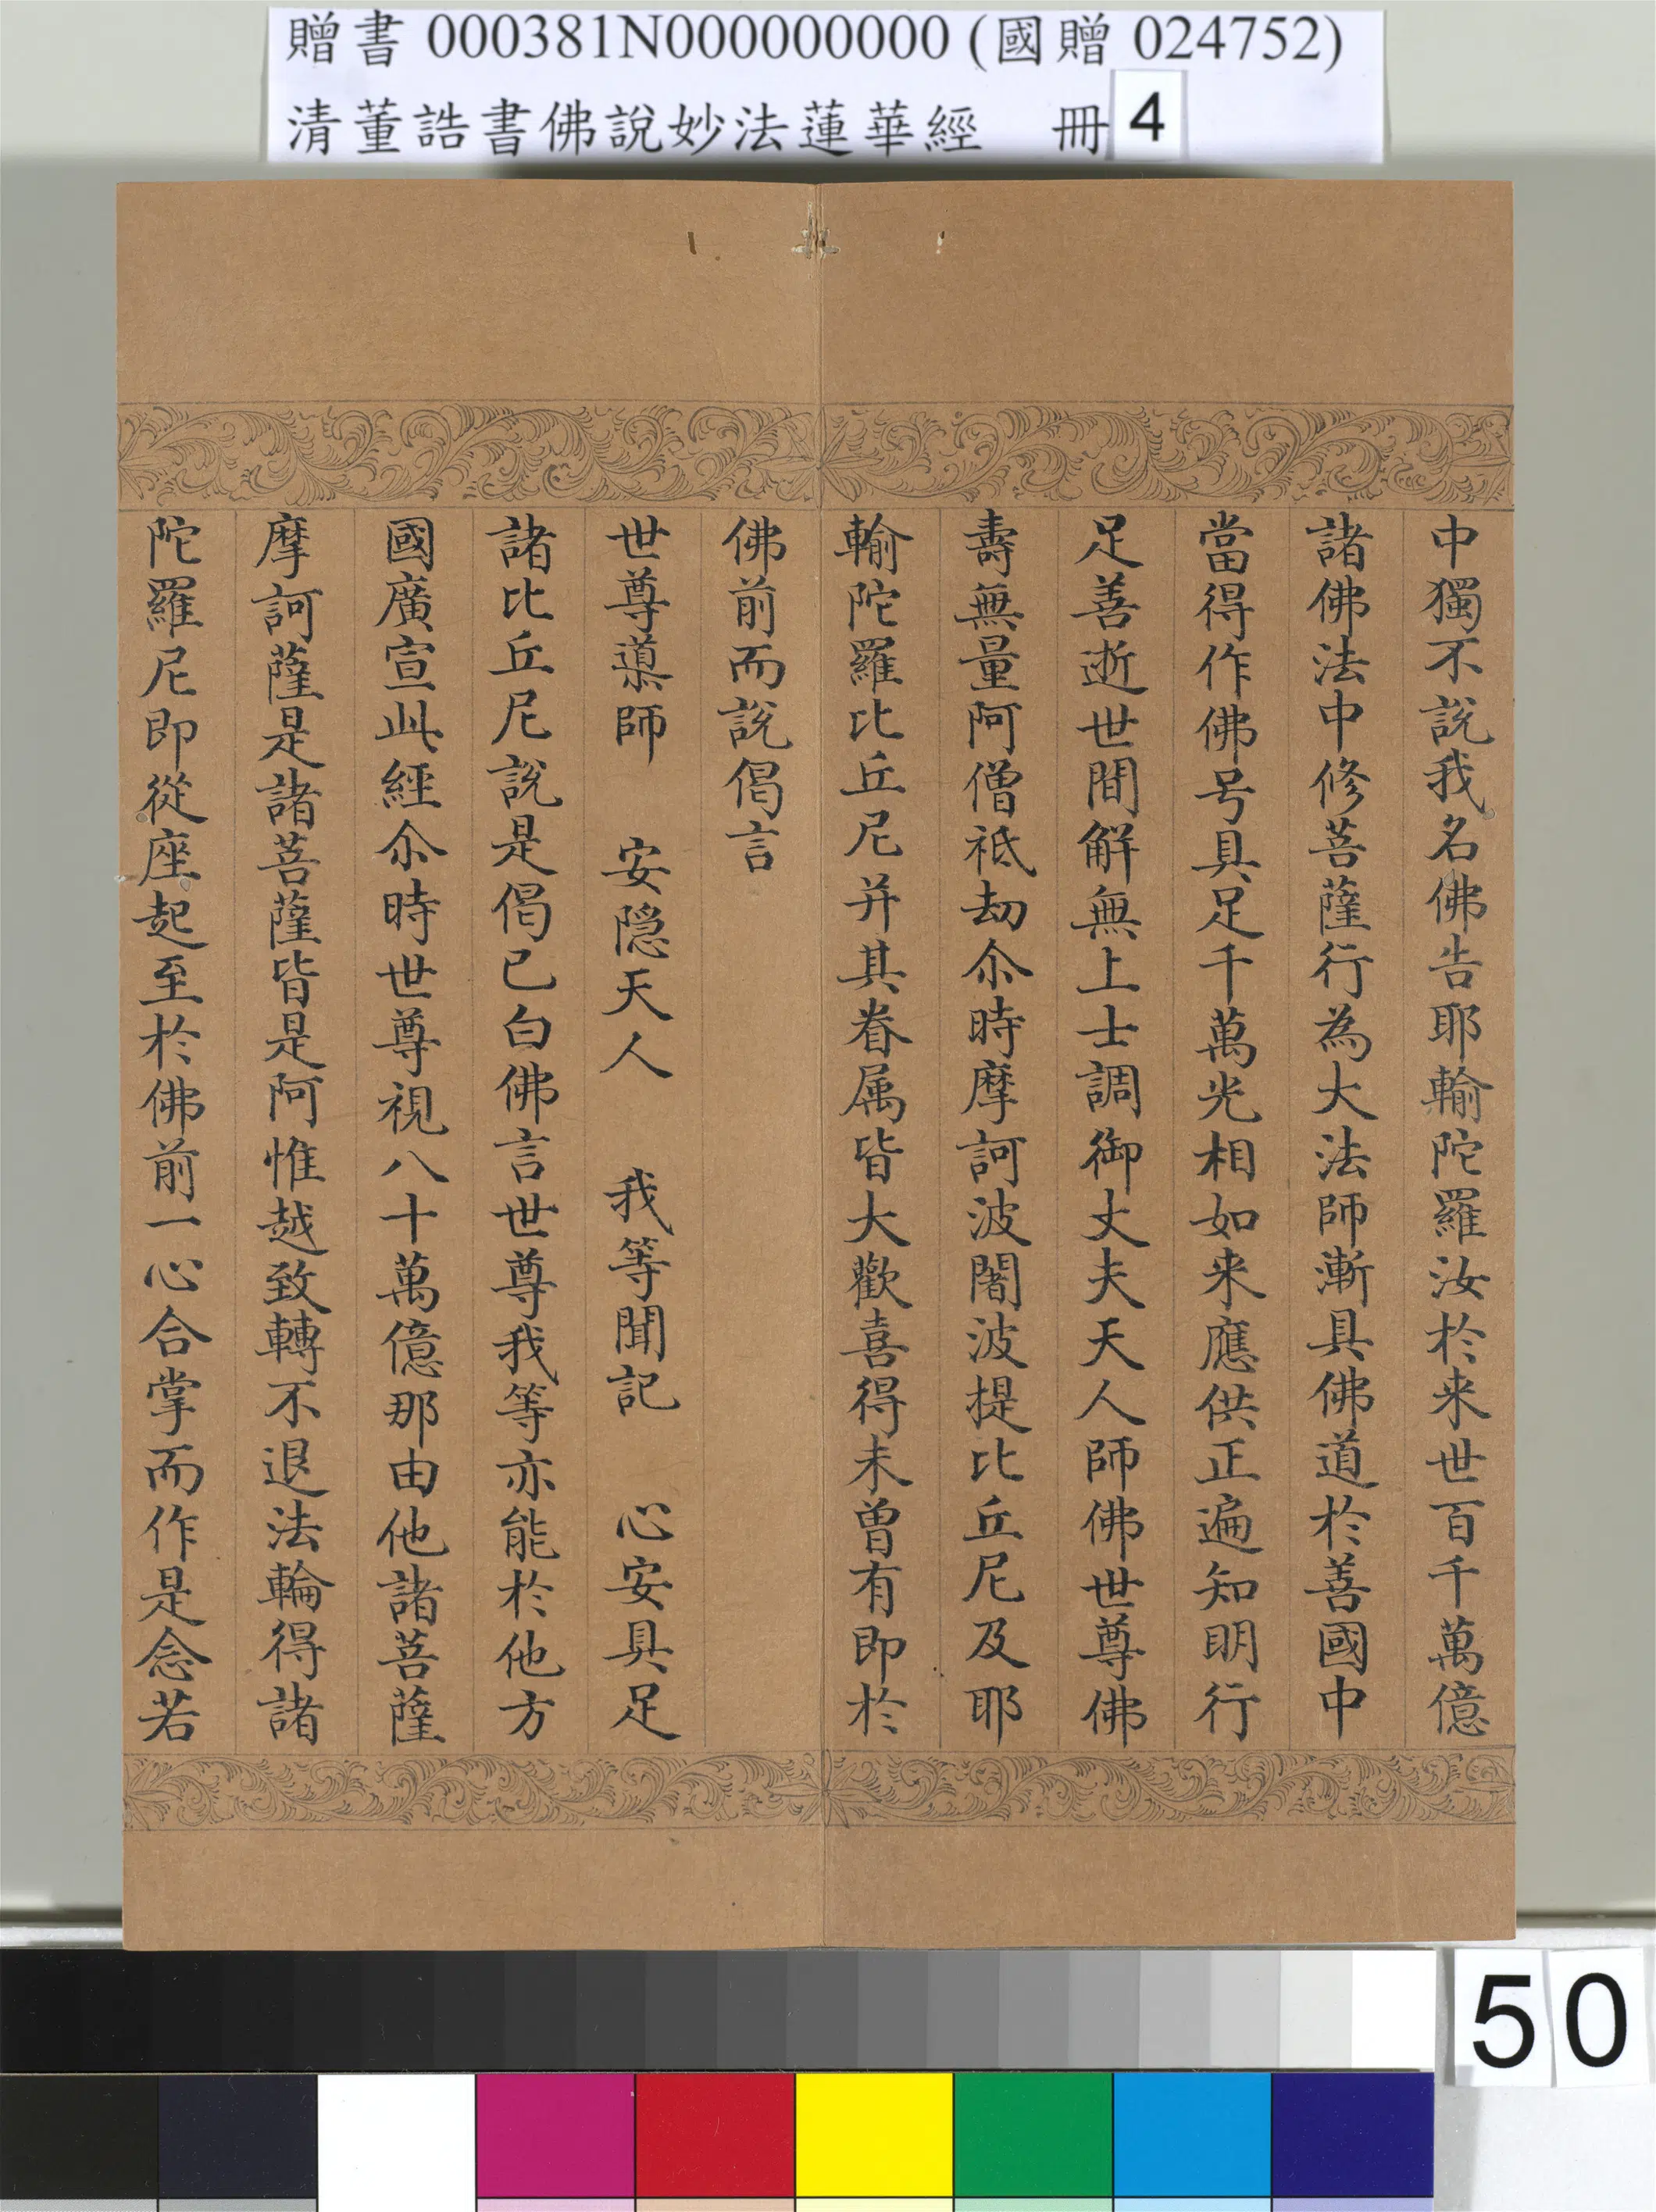 贈書 000381N000000000 (國贈 024752)
清董誥書佛說妙法蓮華經 冊 4
中獨不說我名佛告耶輸陀羅汝於来世百千萬億
諸佛法中修菩薩行為大法師漸具佛道於善國中
當得作佛号具足千萬光相如来應供正遍知明行
足善逝世間解無上士調御丈夫天人師佛世尊佛
壽無量阿僧祇劫尒時摩訶波闍波提比丘尼及耶
輸陀羅比丘尼并其眷属皆大歡喜得未曾有即於
佛前而說偈言
世尊導師 安隱天人 我等聞記 心安具足
諸比丘尼說是偈已白佛言世尊我等亦能於他方
國廣宣此經尒時世尊視八十萬億那由他諸菩薩
摩訶薩是諸菩薩皆是阿惟越致轉不退法輪得諸
陀羅尼即從座起至於佛前一心合掌而作是念若
50